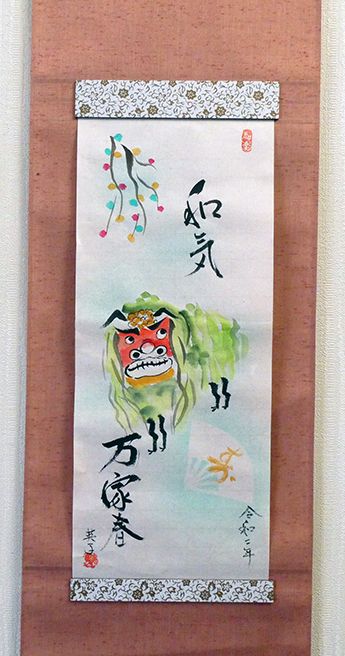 和気
万家春
令和二年
英子